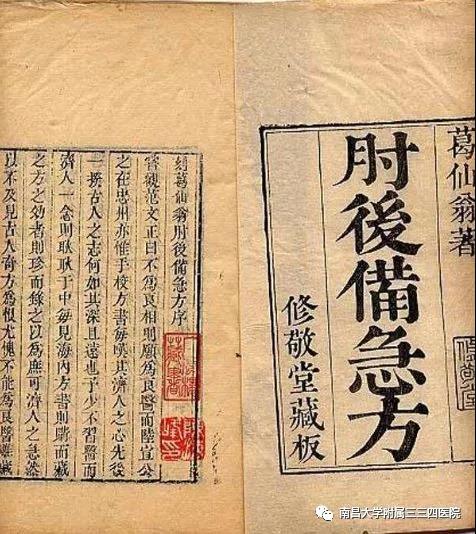 葛仙翁著
肘後備急方
修敬堂藏板
葛仙翁肘後備急方序
嘗觀范文正曰不為良相則願為良醫而陸宣公
之在忠州亦惟手校方書每嘆其濟人之心先後
一揆古人之志何如其深且遠也予少不習醫而
濟人一念則耿耿于中每見海內方書則購而藏
之方之効者則珍而錄之以為庶可濟人之急然
以不及見古人奇方為恨尤愧不能為良醫雖藏
南昌大学附属三三四医院